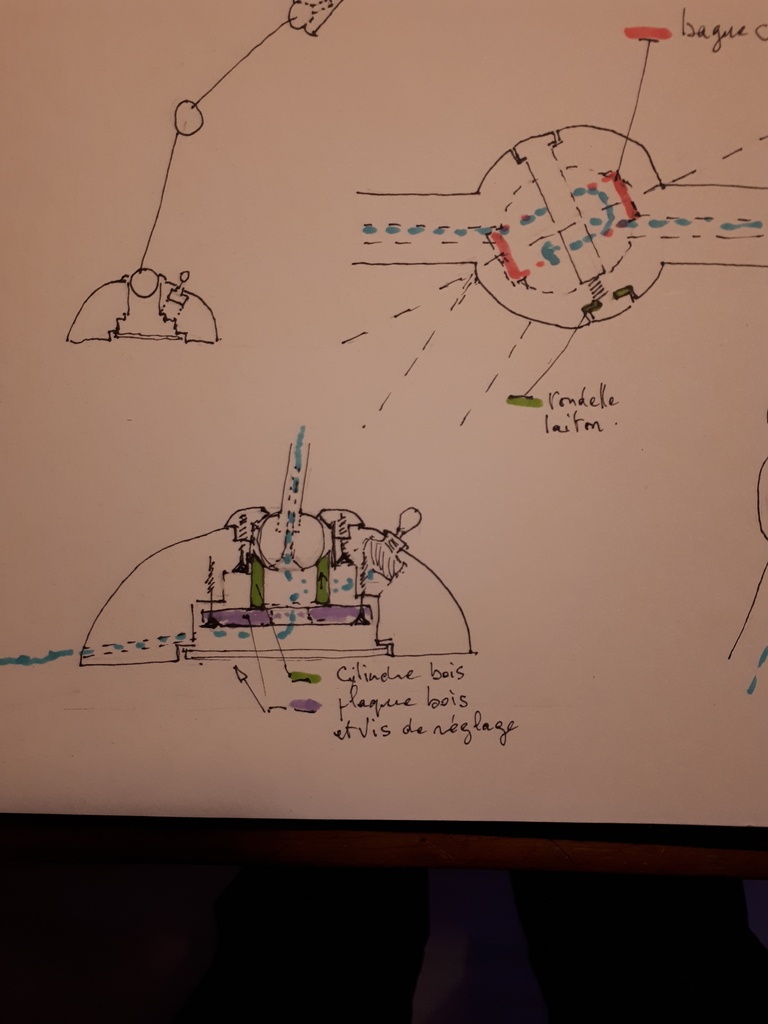 bague
rondelle
laiton.
Cylindre bois
plaque bois
et vis de réglage